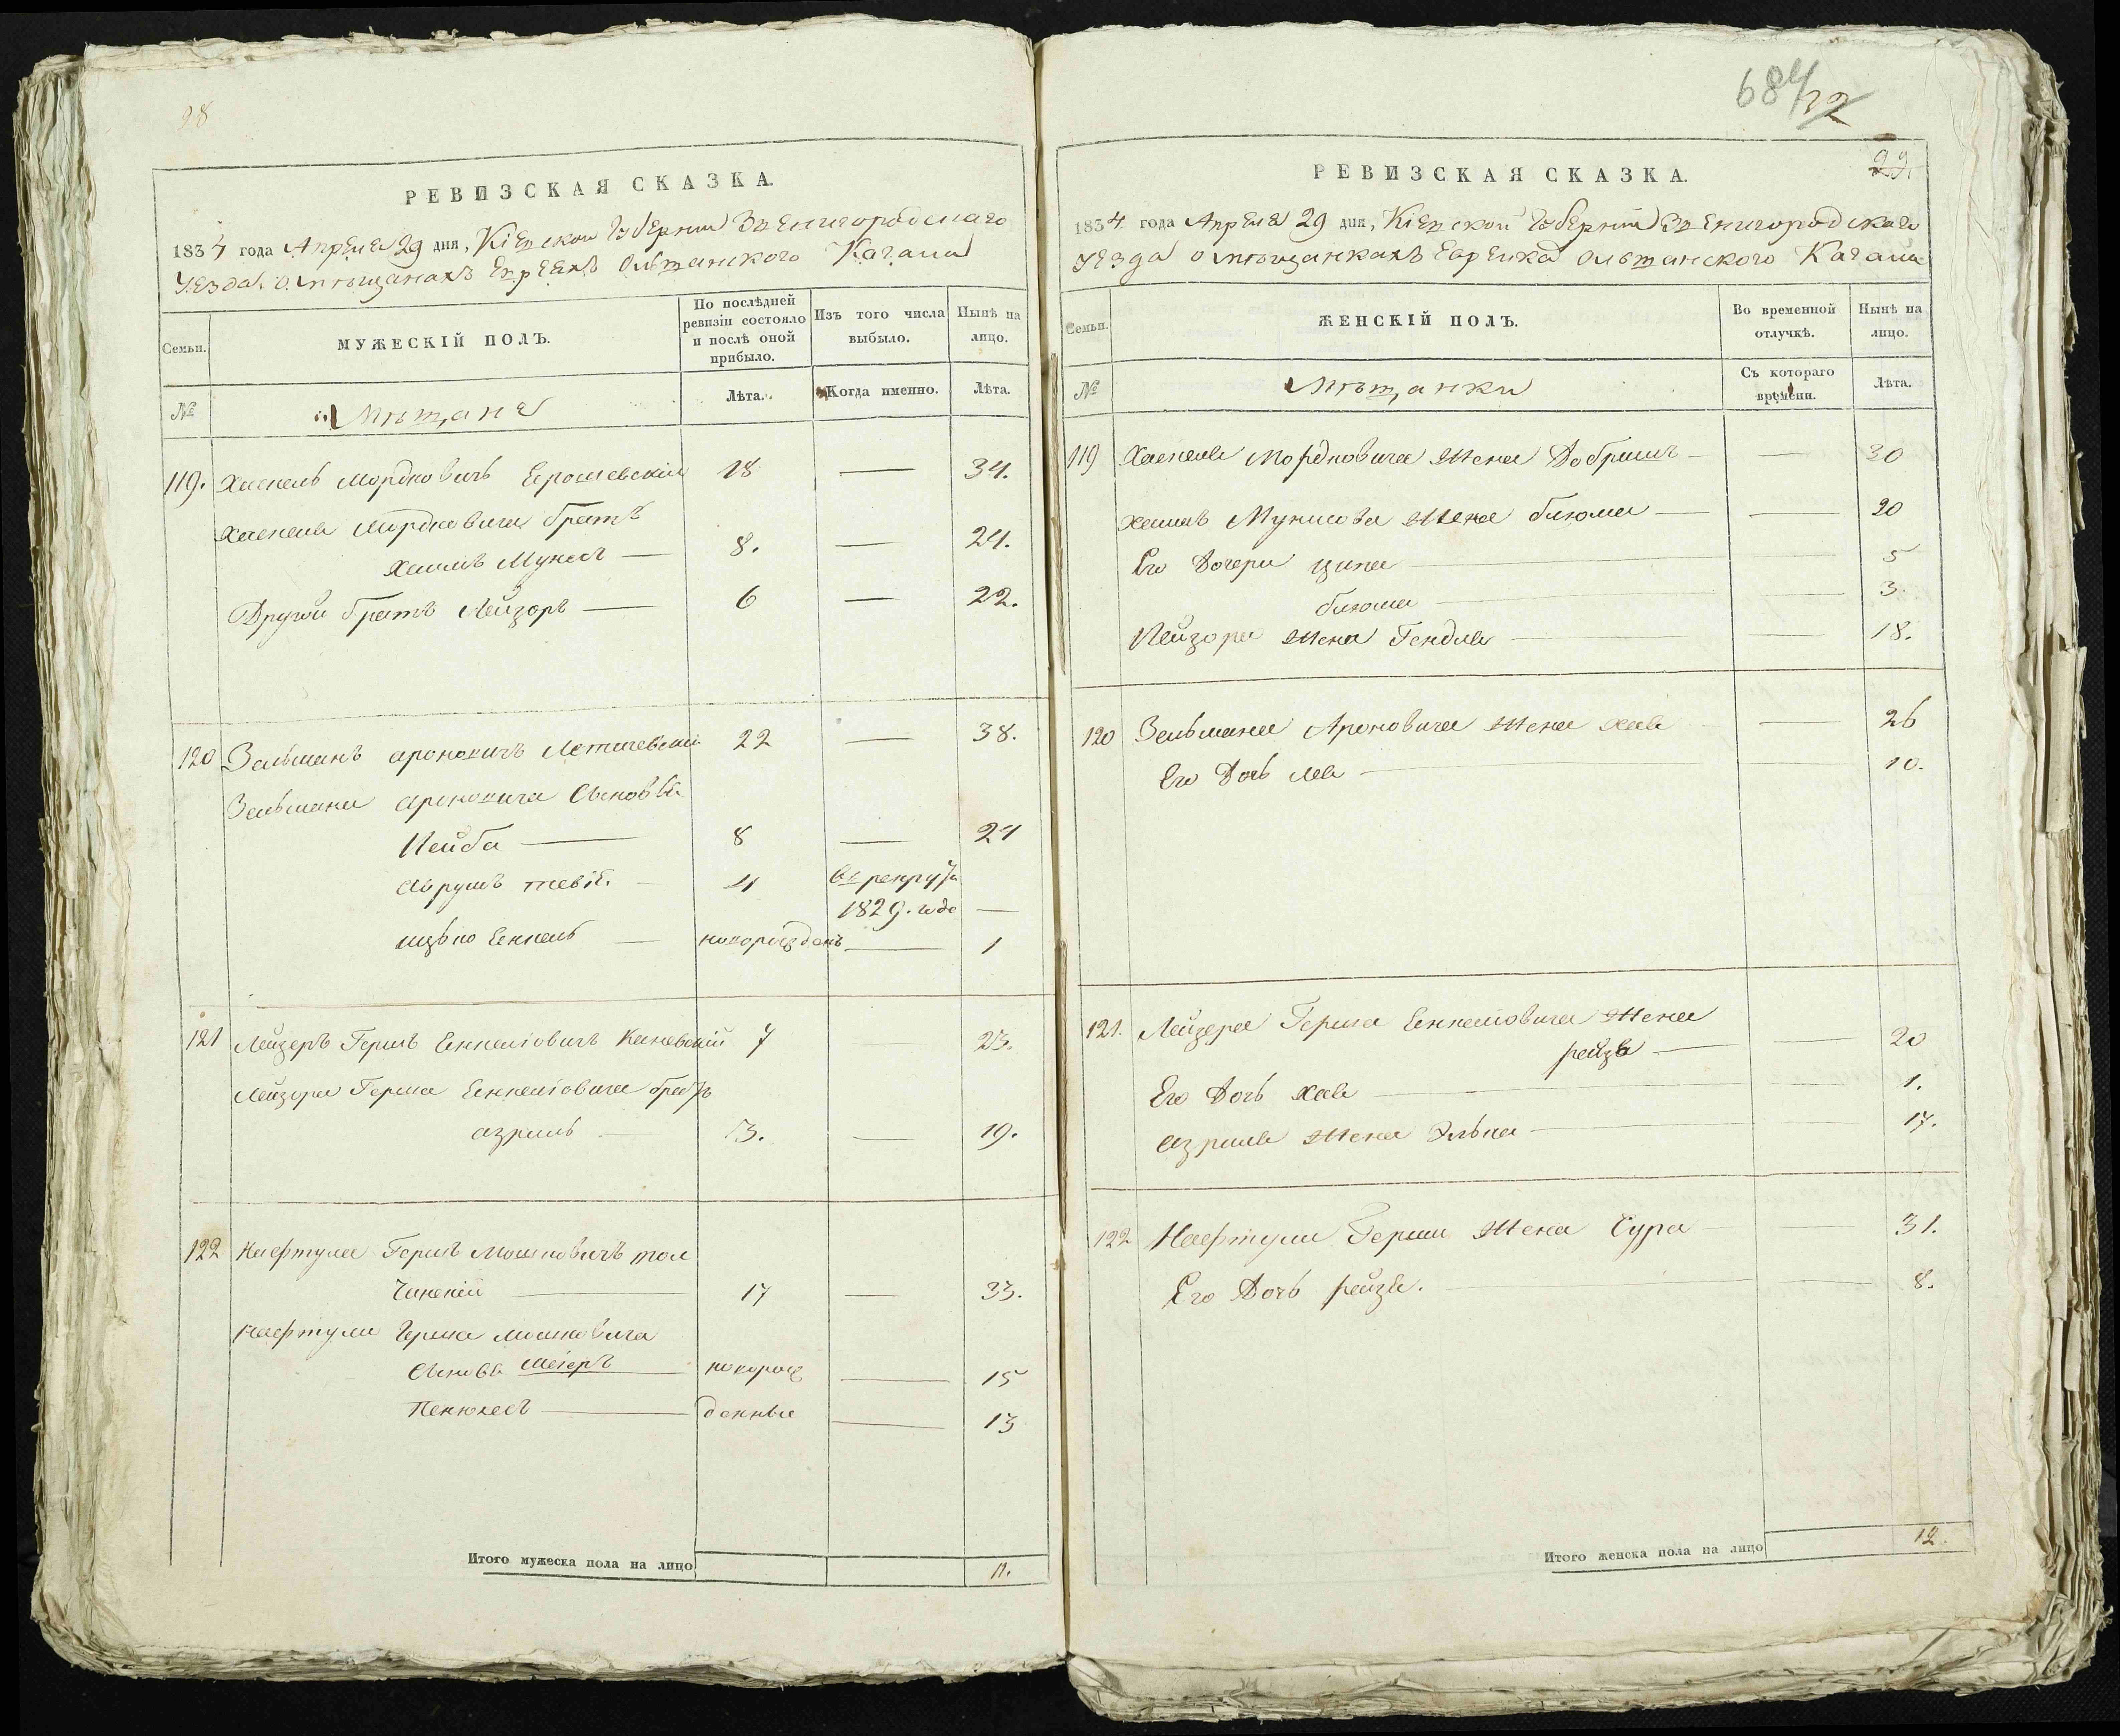 28
РЕВИЗСКАЯ СКАЗКА.
1834 года Апреля 29 дня, Кіевской Губерніи Звенигородскаго
Уезда о мѣщанахъ Евреяхъ Ольшанского Кагала
Семьи.
МУЖЕСКІЙ ПОЛЪ.
По послѣдней ревизіи состояло и послѣ оной прибыло.
Изъ того числа выбыло.
Нынѣ на лицо.
№
Мѣщане
Лѣта.
Когда именно.
Лѣта.
119. Хаскель Мордковичъ 18 — 34.
Хаскеля Мордковича братъ
Хаимъ Мунесъ — 8. — 24.
Другой братъ Лейзоръ — 6 — 22.
120 Зельманъ Ароновичъ Летичевский 22 — 38.
Зельмана Ароновича Сыновья
Лейба — 8 — 24
Аврумъ тевія — 4 въ рекруты
1829. года —
ицько Еинкель — новорожденъ — 1
121 Лейзеръ Гершъ Каневскій 7 — 23.
Лейзера Герша братъ
азриль — 3. — 19.
122 Нафтула Гершъ Мошковичъ тол
чинский — 17 — 33.
Нафтули Герша Мошковича
Сыновья Меіеръ новорож — 15
— денные — 13
Итого мужеска пола на лицо 11.
684/32
29.
РЕВИЗСКАЯ СКАЗКА.
1834 года Апреля 29 дня, Кіевской Губерніи Звенигородскаго
уезда о мѣщанкахъ Еврейка Ольшанского Кагала
Семьи.
ЖЕНСКІЙ ПОЛЪ.
Во временной отлучкѣ.
Нынѣ на лицо.
№
Мѣщанки
Съ котораго времени.
Лѣта.
119 Хаскеля Мордковича Жена Добришъ — — 30
Хаима Мунисова Жена блюма — — 20
Его Дочери ципа — — 5
блюма — — 3.
Лейзора Жена Гендля — 18.
120 Зельмана Ароновича Жена хая — 26
Его Дочь лея — — 10.
121. Лейзера Герша Жена
рейзя — — 20
Его Дочь хая — — 1.
азриля Жена Элька — 17.
122 Нафтули Герша Жена Сура — — 31.
Его Дочь рейзя. — — 8.
Итого женска пола на лицо 12.